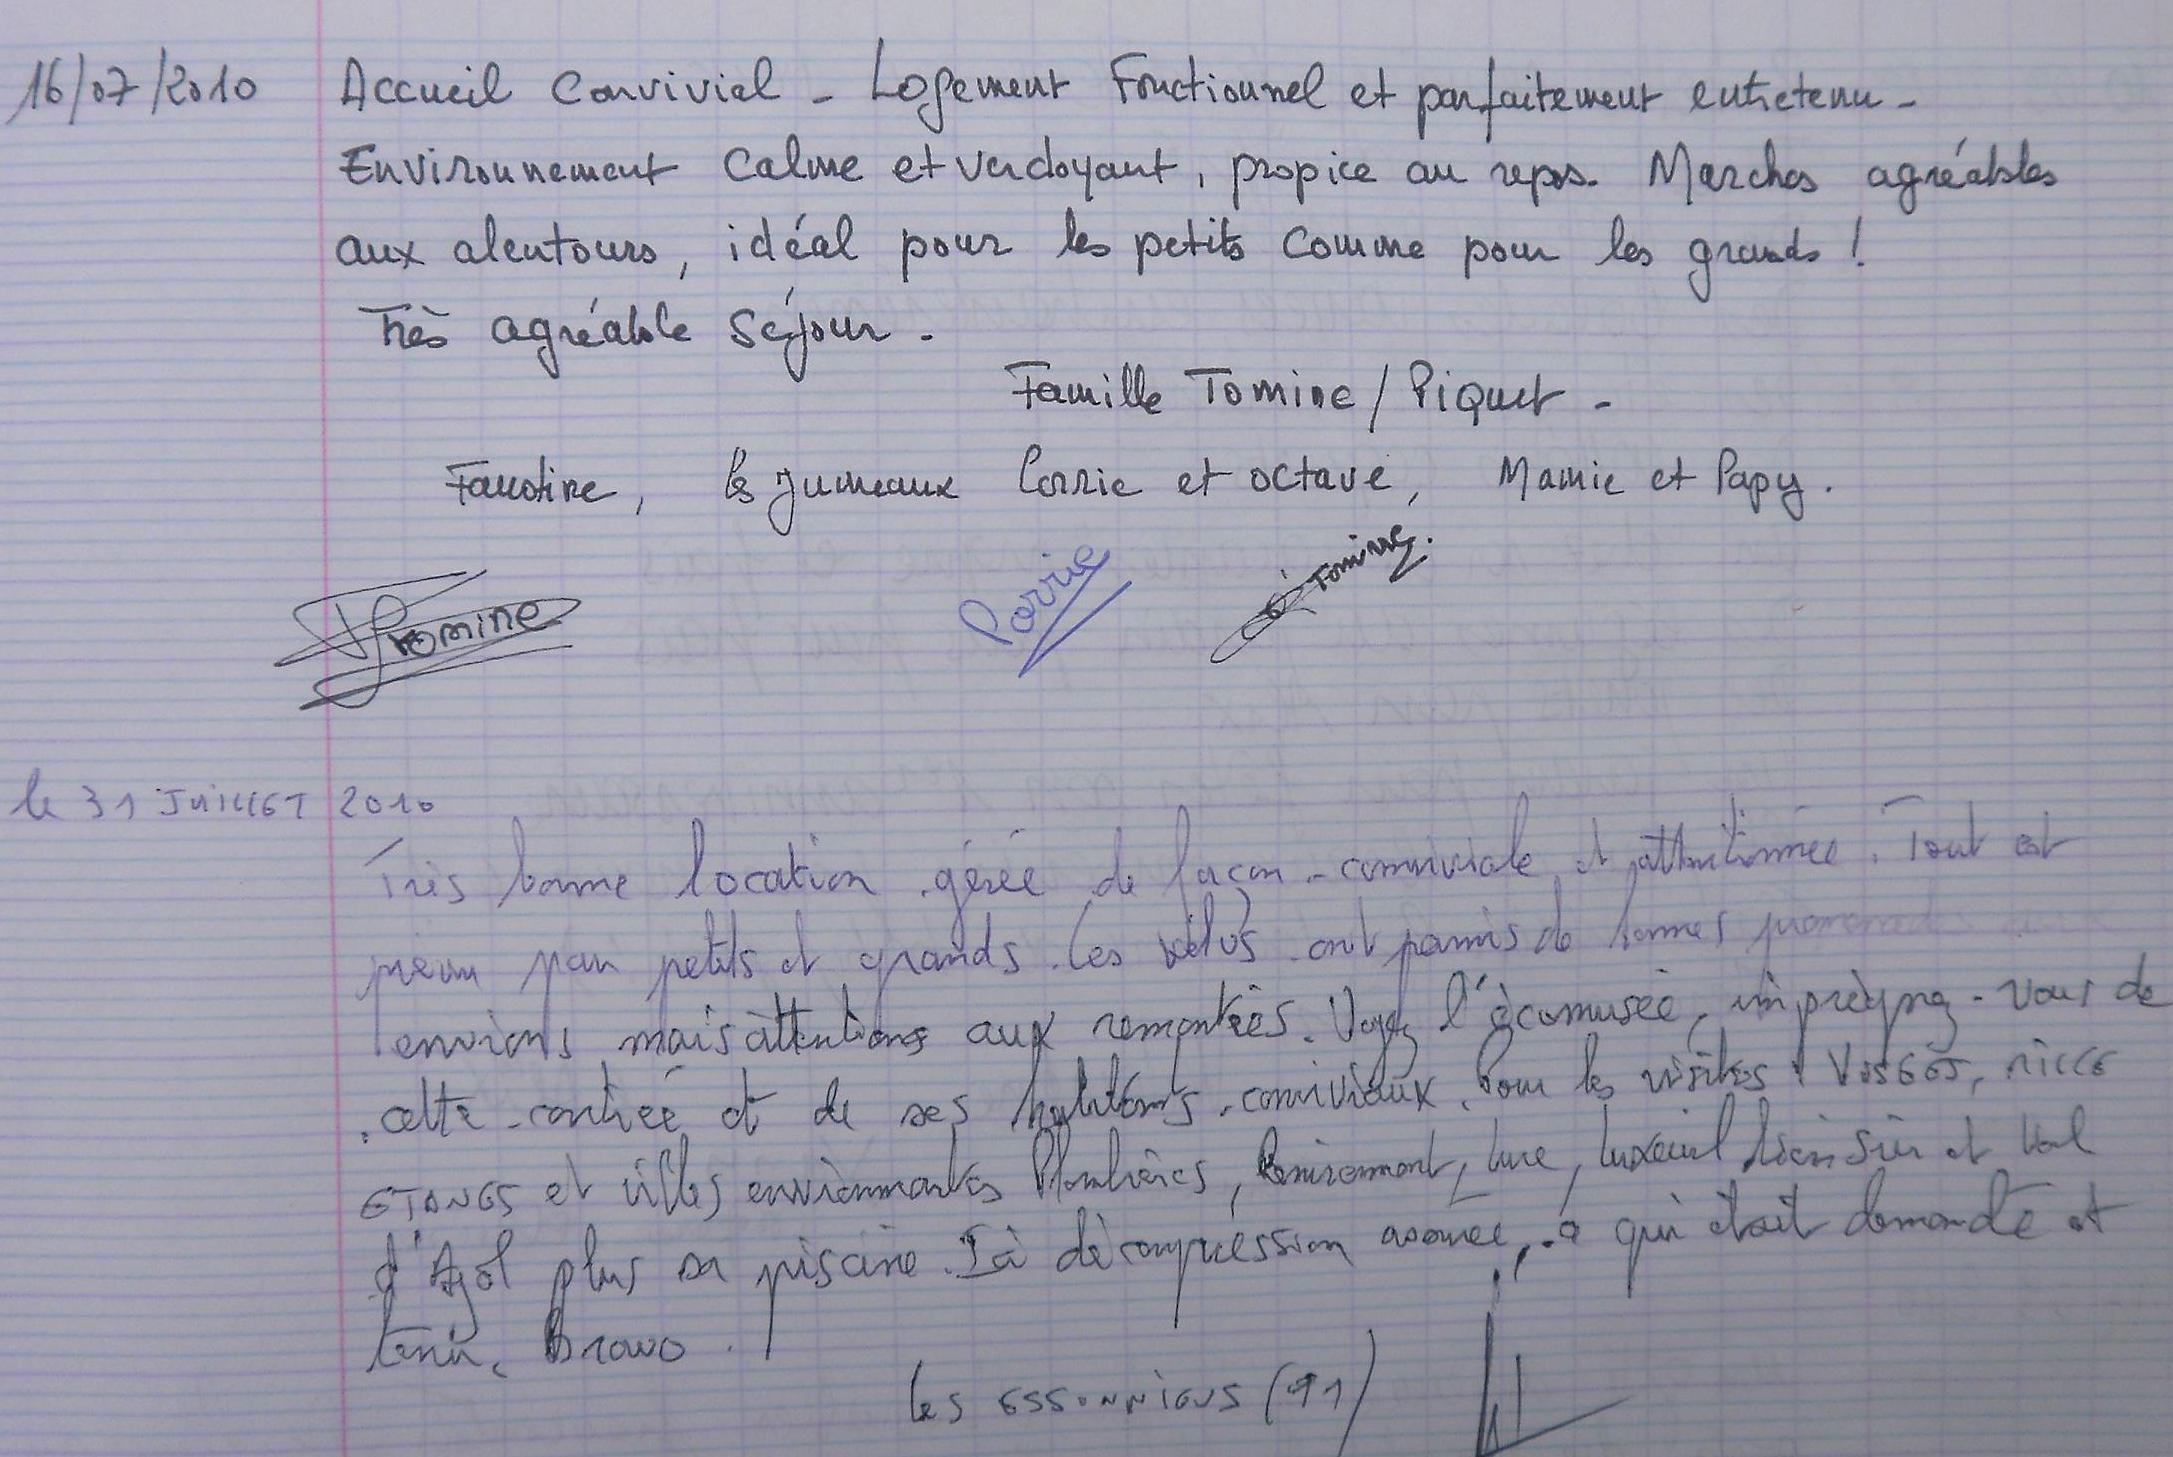 16/07/2010 Accueil convivial - Logement Fonctionnel et parfaitement entretenu -
Environnement calme et verdoyant, propice au repos. Marches agréables
aux alentours, idéal pour les petits comme pour les grands !
Très agréable séjour -
Famille Tomine / Piquet -
Faustine, les jumeaux Corrie et octave, Mamie et Papy.
Tomine
Corrie
Tomine.
le 31 JUILLET 2010
Très bonne location gérée de façon conviviale et attentionnée. Tout est
prévu pour petits et grands. Les vélos ont permis de bonnes
environs mais attention aux remontées. Voyez l'écomusée, imprégnez-vous de
cette contrée et de ses habitants conviviaux. Pour les visites : VOSGES, MILLE
ETANGS et villes environnantes Plombières, Remiremont, Lure, Luxeuil bien sûr et Val
d'Ajol plus sa piscine. Ici décompression assurée, qui était demandé et
tenu. Bravo.
Les ESSONNIENS (91)